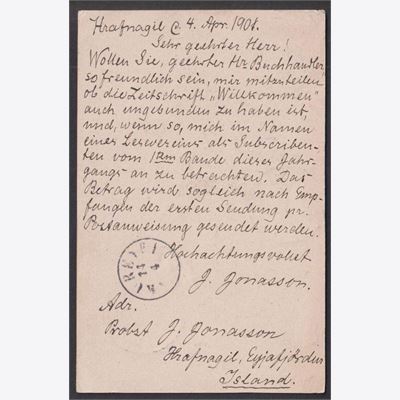 Hrafnagil d. 4. Apr. 1901.
Sehr geehrter Herr!
Wollen Sie, geehrter Hr. Buchhandler,
so freundlich sein, mir mitzuteilen
ob die Zeitschrift „Willkommen"
auch ungebunden zu haben ist,
und, wenn so, mich im Namen
eines Lesvereins als Subscriben-
ten vom 1tem Bande dieses Jahr-
gangs an zu betrachten. Das
Betrag wird sogleich nach Emp-
fangen der ersten Sendung pr.
Postanweisung gesendet werden.
Hochachtungsvollst
J. Jonasson.
Adr.
Probst J. Jonasson
Hrafnagil, Eyjafjorden
Island.